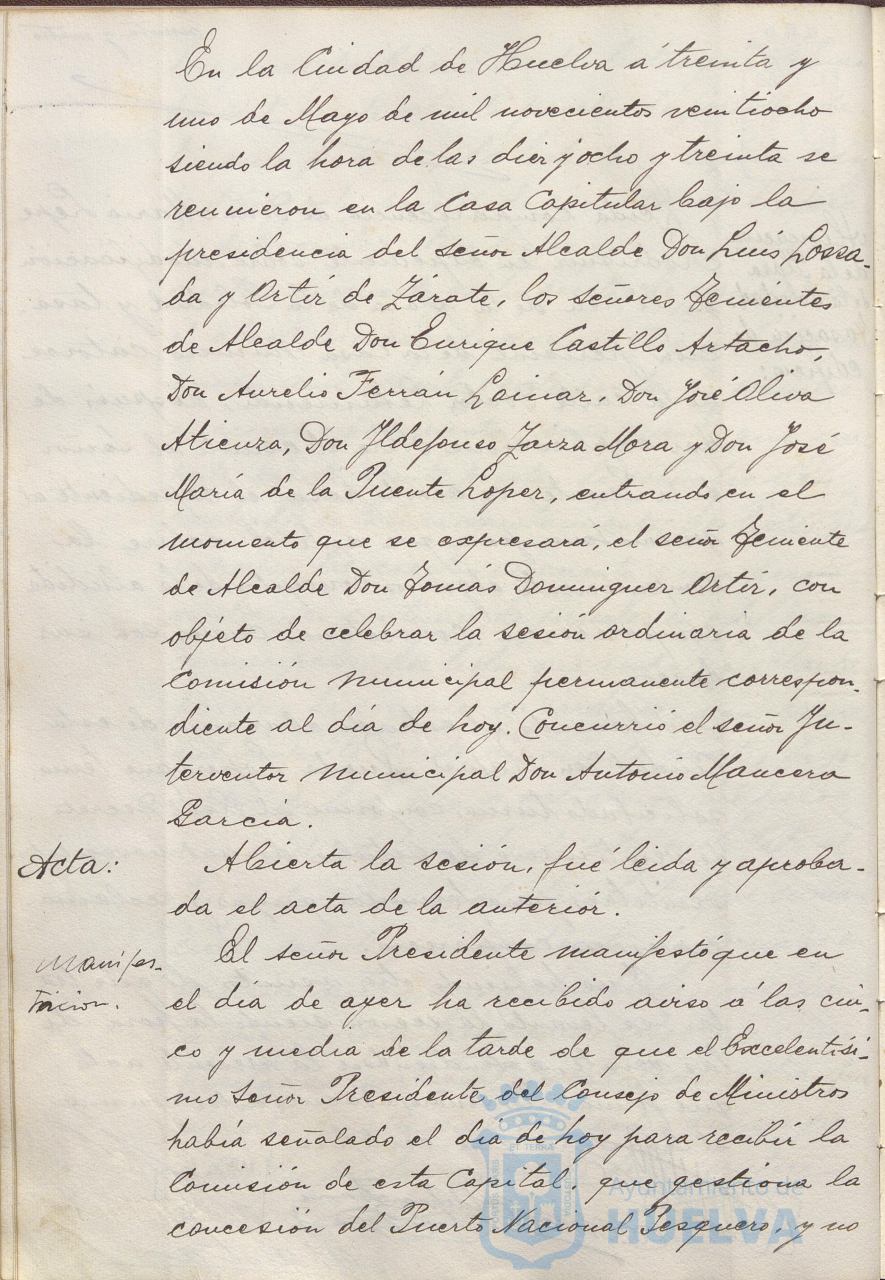 En la Ciudad de Huelva á treinta y
uno de Mayo de mil novecientos veintiocho
siendo la hora de las diez y ocho y treinta se
reunieron en la Casa Capitular bajo la
presidencia del señor Alcalde Don Luís Lossa-
da y Ortíz de Zárate, los señores Tenientes
de Alcalde Don Enrique Castillo Artacho,
Don Aurelio Ferrán Lainar, Don José Oliva
Atienza, Don Ildefonso Zarza Mora y Don José
María de la Puente Lopez, entrando en el
momento que se expresará, el señor Teniente
de Alcalde Don Tomás Dominguez Ortíz, con
objeto de celebrar la sesión ordinaria de la
Comisión municipal permanente correspon-
diente al día de hoy. Concurrió el señor In-
terventor municipal Don Antonio Mancera
García.
Acta: Abierta la sesión, fué leida y aproba-
da el acta de la anteriór.
Manifes- El señor Presidente manifestó que en
el día de ayer ha recibido aviso á las cin-
co y media de la tarde de que el Excelentísi-
mo Señor Presidente del Consejo de Ministros
había señalado el día de hoy para recibir la
Comisión de esta Capital, que gestiona la
concesión del Puerto Nacional Pesquero, y no
Ayuntamiento de
HUELVA